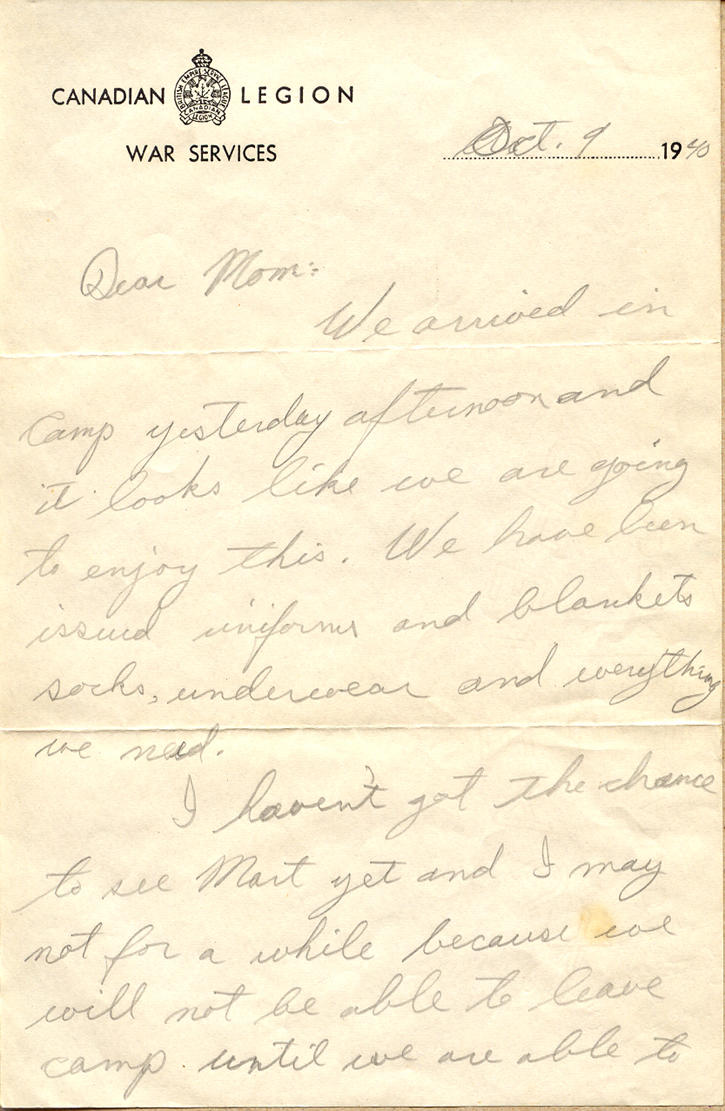 CANADIAN LEGION
WAR SERVICES
Oct. 9 1940
Dear Mom:
We arrived in
camp yesterday afternoon and
it looks like we are going
to enjoy this. We have been
issued uniforms and blankets
socks, underwear and everything
we need.
I haven't got the chance
to see Mart yet and I may
not for a while because we
will not be able to leave
camp until we are able to